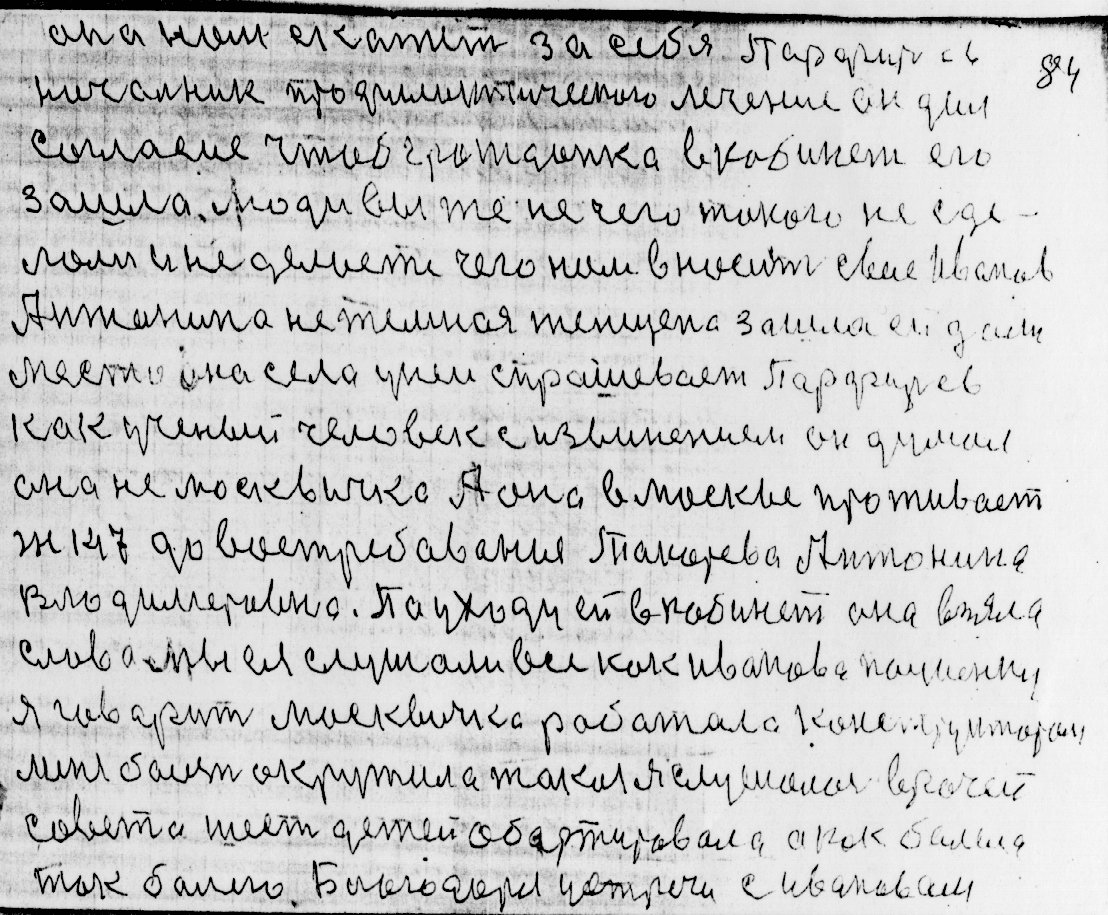 она нам скажит за себя Парфирьев 884
начальник профилиптического лечение он дал
согласие чтоб грожданка вкобинет его
зашла. люди вы же не чего токого не сде-
лоли и не делоети чего нам вносит свае Иванов
Антонина не темная женщена зашла ей дали
место она села уней спрашевает Парфирьев
как ученый человек сизвинением он думал
она не москвичка А она вмоскве проживает
ж к 47 до востребавания Токорева Антонина
Влодимеровна. Па уходу ей вкобинет она взяла
слова мы ея слушоли все как иванова поционку
я говарит москвичка роботала Конструкторам
миня балезн окружила такая я слушолоя врочей
совета шест детей обартировала а как балела
так балею. Благодоря устречи сивановам